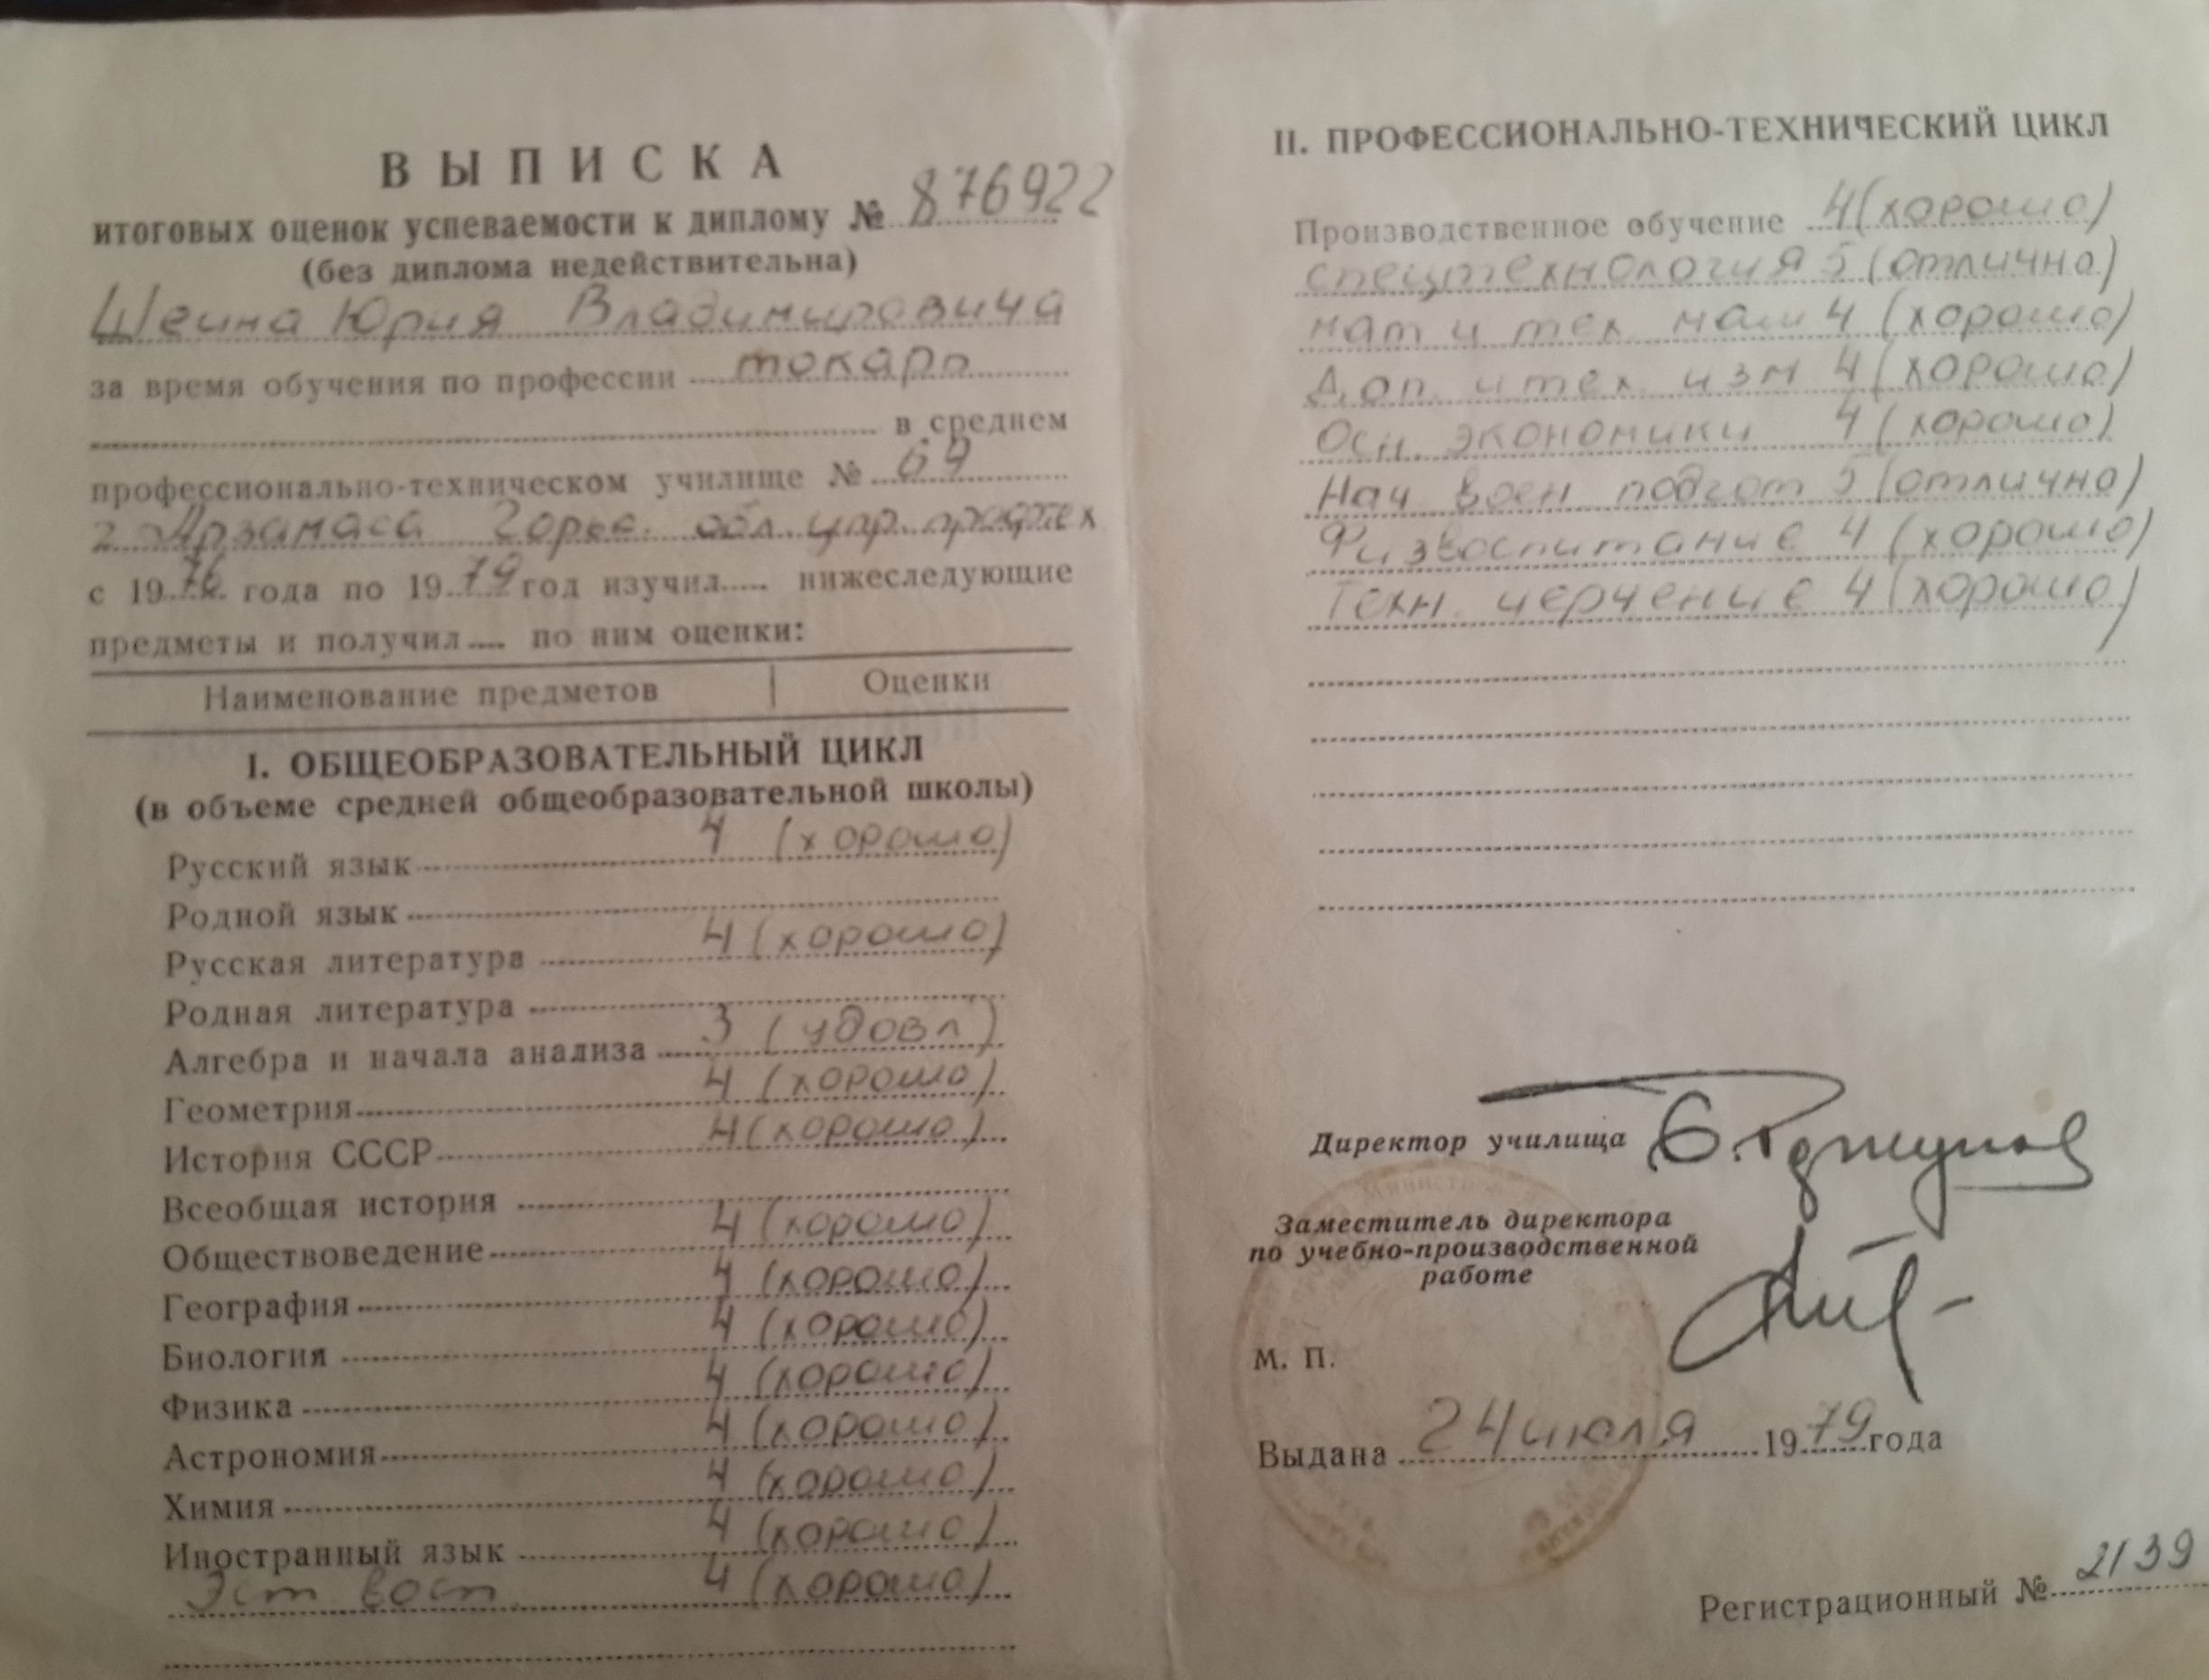 ВЫПИСКА
итоговых оценок успеваемости к диплому № 876922
(без диплома недействительна)
Шеина Юрия Владимировича
за время обучения по профессии токарь
в среднем
профессионально-техническом училище №
г Арзамаса Горьк. обл упр. профтех
с 1976 года по 1979 год изучил нижеследующие
предметы и получил по ним оценки:
Наименование предметов Оценки
I. ОБЩЕОБРАЗОВАТЕЛЬНЫЙ ЦИКЛ
(в объеме средней общеобразовательной школы)
Русский язык 4 (хорошо)
Родной язык
Русская литература 4 (хорошо)
Родная литература
Алгебра и начала анализа 3 (удовл)
Геометрия 4 (хорошо)
История СССР 4 (хорошо)
Всеобщая история
Обществоведение 4 (хорошо)
География 4 (хорошо)
Биология 4 (хорошо)
Физика 4 (хорошо)
Астрономия 4 (хорошо)
Химия 4 (хорошо)
Иностранный язык 4 (хорошо)
Эст восп 4 (хорошо)
II. ПРОФЕССИОНАЛЬНО-ТЕХНИЧЕСКИЙ ЦИКЛ
Производственное обучение 4 (хорошо)
спецтехнология 5 (отлично)
мат и тех. маш 4 (хорошо)
Доп. и тех. изм 4 (хорошо)
Осн. экономики 4 (хорошо)
Нач воен подгот 5 (отлично)
Физвоспитание 4 (хорошо)
Техн. черчение 4 (хорошо)
Директор училища
Заместитель директора
по учебно-производственной
работе
М. П.
Выдана 24 июля 1979 года
Регистрационный № 2139